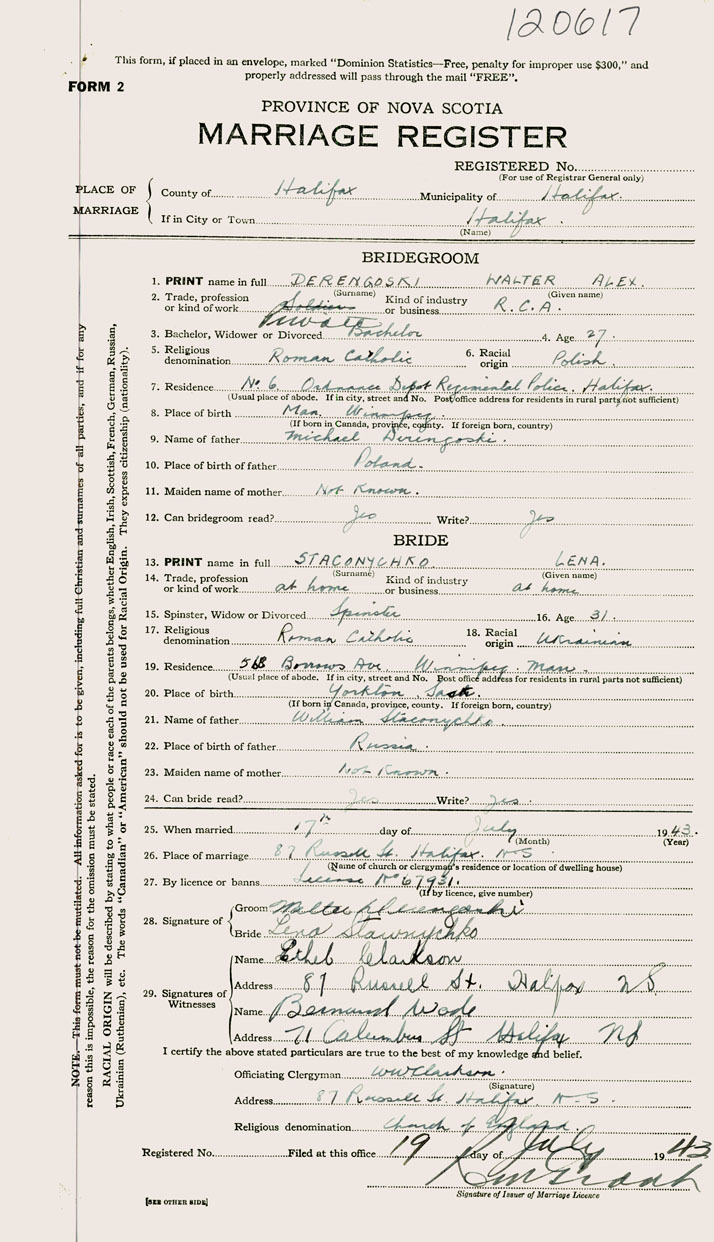 120617
This form, if placed in an envelope, marked "Dominion Statistics—Free, penalty for improper use $300," and
properly addressed will pass through the mail "FREE".
FORM 2
PROVINCE OF NOVA SCOTIA
MARRIAGE REGISTER
REGISTERED No.
(For use of Registrar General only)
PLACE OF MARRIAGE
County of Halifax Municipality of Halifax.
If in City or Town Halifax.
(Name)
BRIDEGROOM
1. PRINT name in full DERENGOSKI WALTER ALEX.
(Surname) (Given name)
2. Trade, profession or kind of work Soldier Private Kind of industry or business R.C.A.
3. Bachelor, Widower or Divorced Bachelor 4. Age 27.
5. Religious denomination Roman Catholic 6. Racial origin Polish.
7. Residence No. 6. Ordnance Depot Regimental Police. Halifax.
(Usual place of abode. If in city, street and No. Post office address for residents in rural parts not sufficient)
8. Place of birth Man. Winnipeg.
(If born in Canada, province, county. If foreign born, country)
9. Name of father Michael Derengoski.
10. Place of birth of father Poland.
11. Maiden name of mother Not Known.
12. Can bridegroom read? Yes Write? Yes
BRIDE
13. PRINT name in full STACONYCHKO LENA.
(Surname) (Given name)
14. Trade, profession or kind of work at home Kind of industry or business at home
15. Spinster, Widow or Divorced Spinster 16. Age 31.
17. Religious denomination Roman Catholic 18. Racial origin Ukrainian
19. Residence 568 Borrows Ave Winnipeg. Man.
(Usual place of abode. If in city, street and No. Post office address for residents in rural parts not sufficient)
20. Place of birth Yorkton, Sask.
(If born in Canada, province, county. If foreign born, country)
21. Name of father William Staconychko.
22. Place of birth of father Russia.
23. Maiden name of mother Not Known.
24. Can bride read? Yes Write? Yes.
25. When married 17th day of July 1943.
(Month) (Year)
26. Place of marriage 87 Russell St. Halifax. N-S
(Name of church or clergyman's residence or location of dwelling house)
27. By licence or banns License No 67931.
(If by licence, give number)
28. Signature of
Groom Walter Derengoski
Bride Lena Stawnychko
29. Signatures of Witnesses
Name Ethel Clarkson
Address 87 Russell St. Halifax NS.
Name Wade
Address 71 Columbus St Halifax NS
I certify the above stated particulars are true to the best of my knowledge and belief.
Officiating Clergyman WWClarkson.
(Signature)
Address 87 Russell St. Halifax. N-S.
Religious denomination Church of England.
Registered No. Filed at this office 19 day of July 1943
Signature of Issuer of Marriage Licence
[SEE OTHER SIDE]
NOTE.—This form must not be mutilated. All information asked for is to be given, including full Christian and surnames of all parties, and if for any
reason this is impossible, the reason for the omission must be stated.
RACIAL ORIGIN will be described by stating to what people or race each of the parents belongs, whether English, Irish, Scottish, French, German, Russian,
Ukrainian (Ruthenian), etc. The words "Canadian" or "American" should not be used for Racial Origin. They express citizenship (nationality).